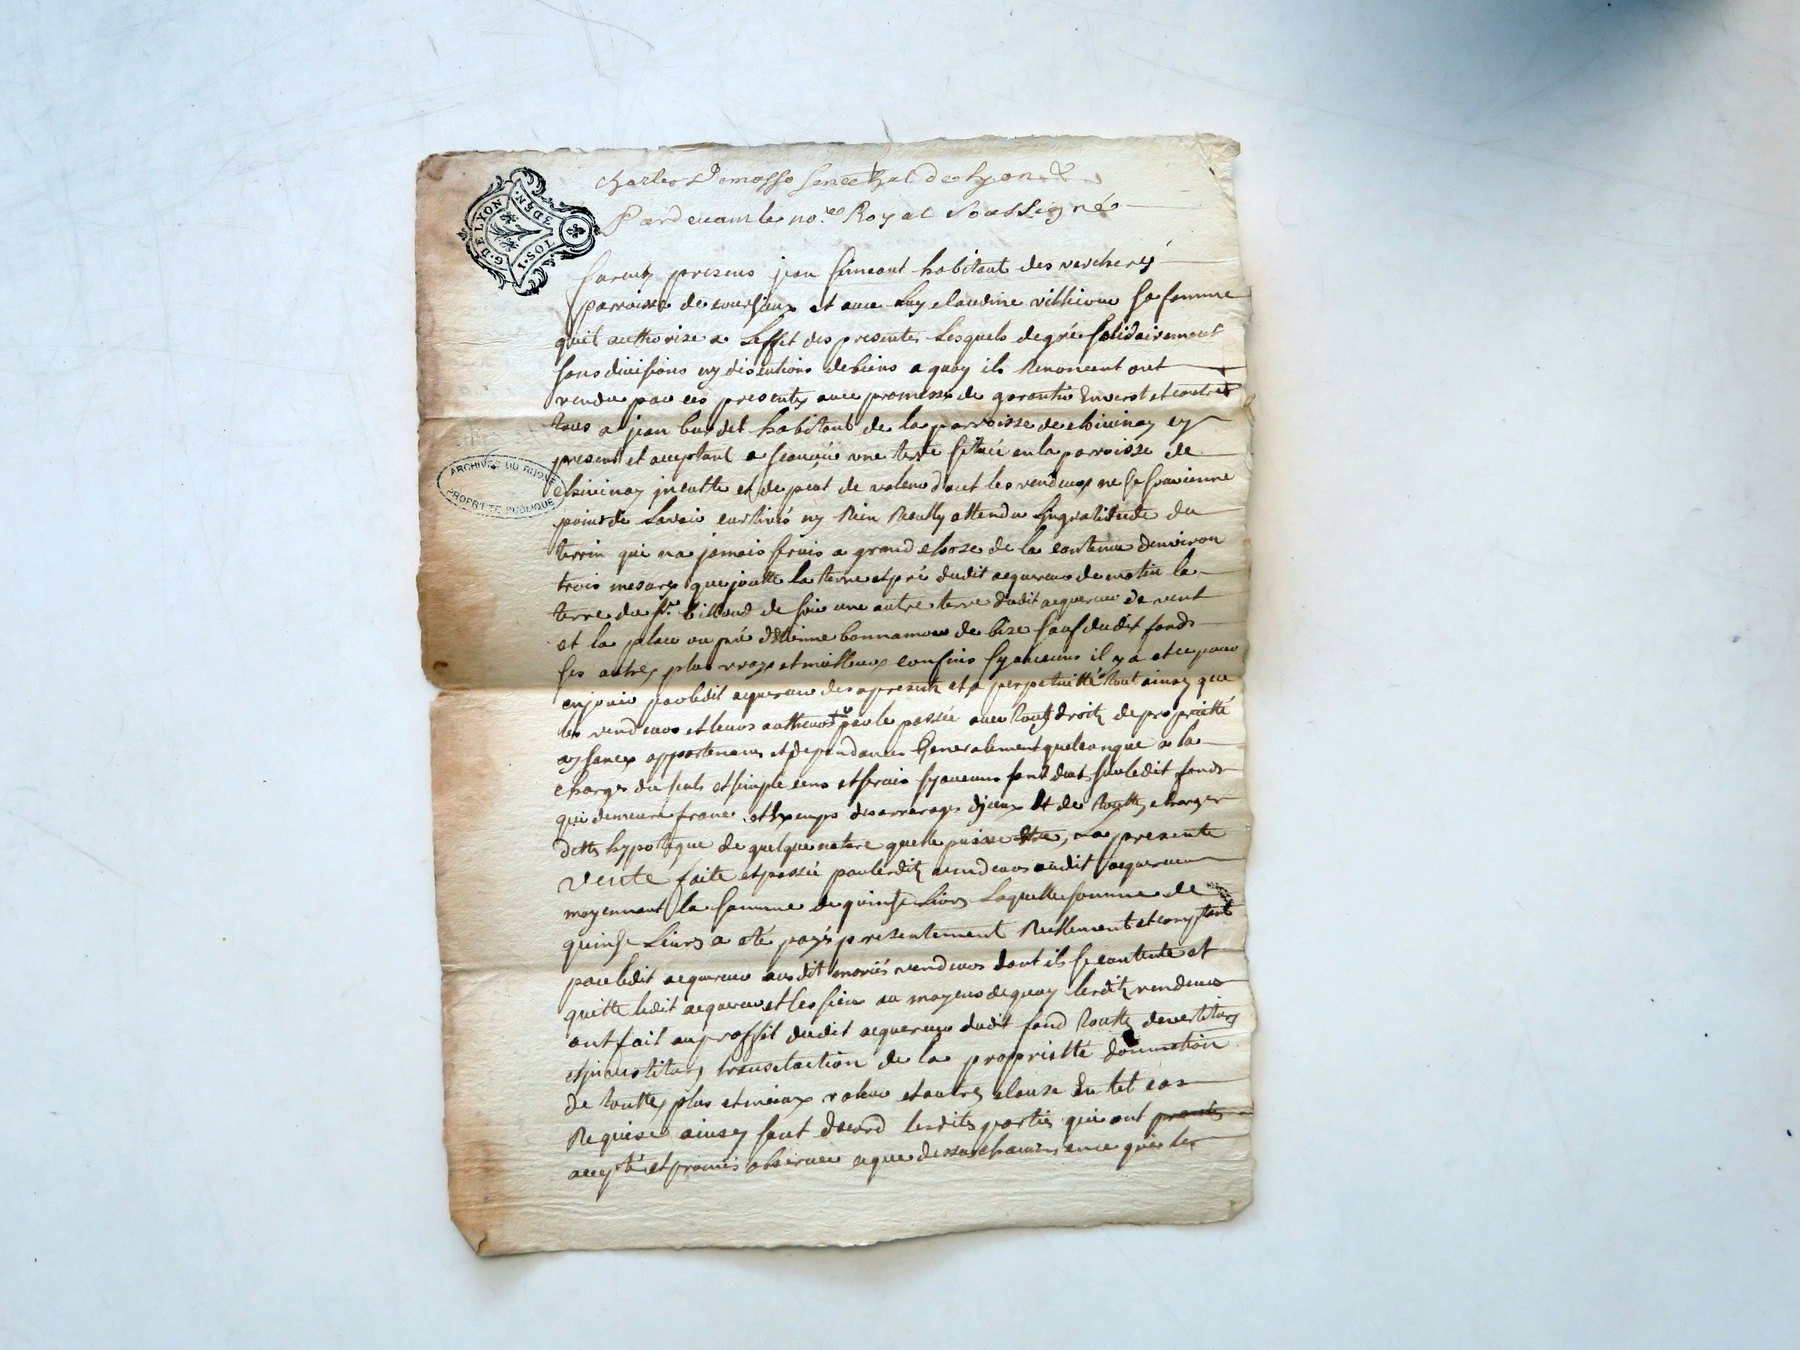 G. DE LYON
1. SOL. 8 DEN.
Charles Demasso Senechal de Lyon &
Pardevant le no.re Royal Soussigné
furent presens jean simeant habitant des verchery
parroisse de coursieux et avec Luy claudine villieux sa femme
quil authorise a Leffet des presentes Lesquels de gré solidairement
sans divisions ny discutions de biens a quoy ils Renoncent ont
vendu par ces presentes avec promesse de garantie Envers et contre
tous a jean burdet habitant de la parroisse de chivinay cy
present et acceptant a scavoir une terre située en la parroisse de
chivinay jnculte et de peut de valeur dont les vendeurs ne se souvienne
point de Lavoir cultivés ny Rien Recully attendu Lingratitude du
terrin qui na jamais servis a grand chose de la contenue denviron
trois mesures que joutte la terre et pré dudit acquereur de matin la
terre du Sr. billiond de soir une autre terre dudit acquereur de vent
et la place ou pré dEtienne bonnamour de bize sauf dudit fonds
ses autres plus vrays et meilleurs confins sy aucuns il y a et ce pour
en jouir par ledit acquereur des apresent et a perpetuitté tout ainsy que
les vendeurs et leurs autheurs par le passée avec touts droits de proprietté
aysances appartenances et dependances Generalement quelconque a la
charges du seuls et simple cens et servis sy aucuns sont dus sur ledit fonds
qui demeure franc et Exemps des arrerages dyceux Et de toutte charges
dettes hypoteque de quelque nature quelle puisse etre, La presente
vente faite et passée par lesdits vendeurs audit acquereur
moyennant la somme de quinse Livres Laquelle somme de
quinse Livres a eté payés presentement Reellement et comptant
par ledit acquereur aus dit mariés vendeurs dont ils se contente et
quitte ledit acquereur et les siens au moyens de quoy lesdits vendeurs
ont fait au proffit dudit acquereur dudit fond toutte devestitures
et jnvestitures translaction de la proprietté donnation
de touttes plus et mieux value et autres clause En tel cas
Requise ainsy sont dacord lesdits parties qui ont promis
accepté et promis observer a que dessus chacuns en ce qui les
ARCHIVES DU RHONE
PROPRIETE PUBLIQUE